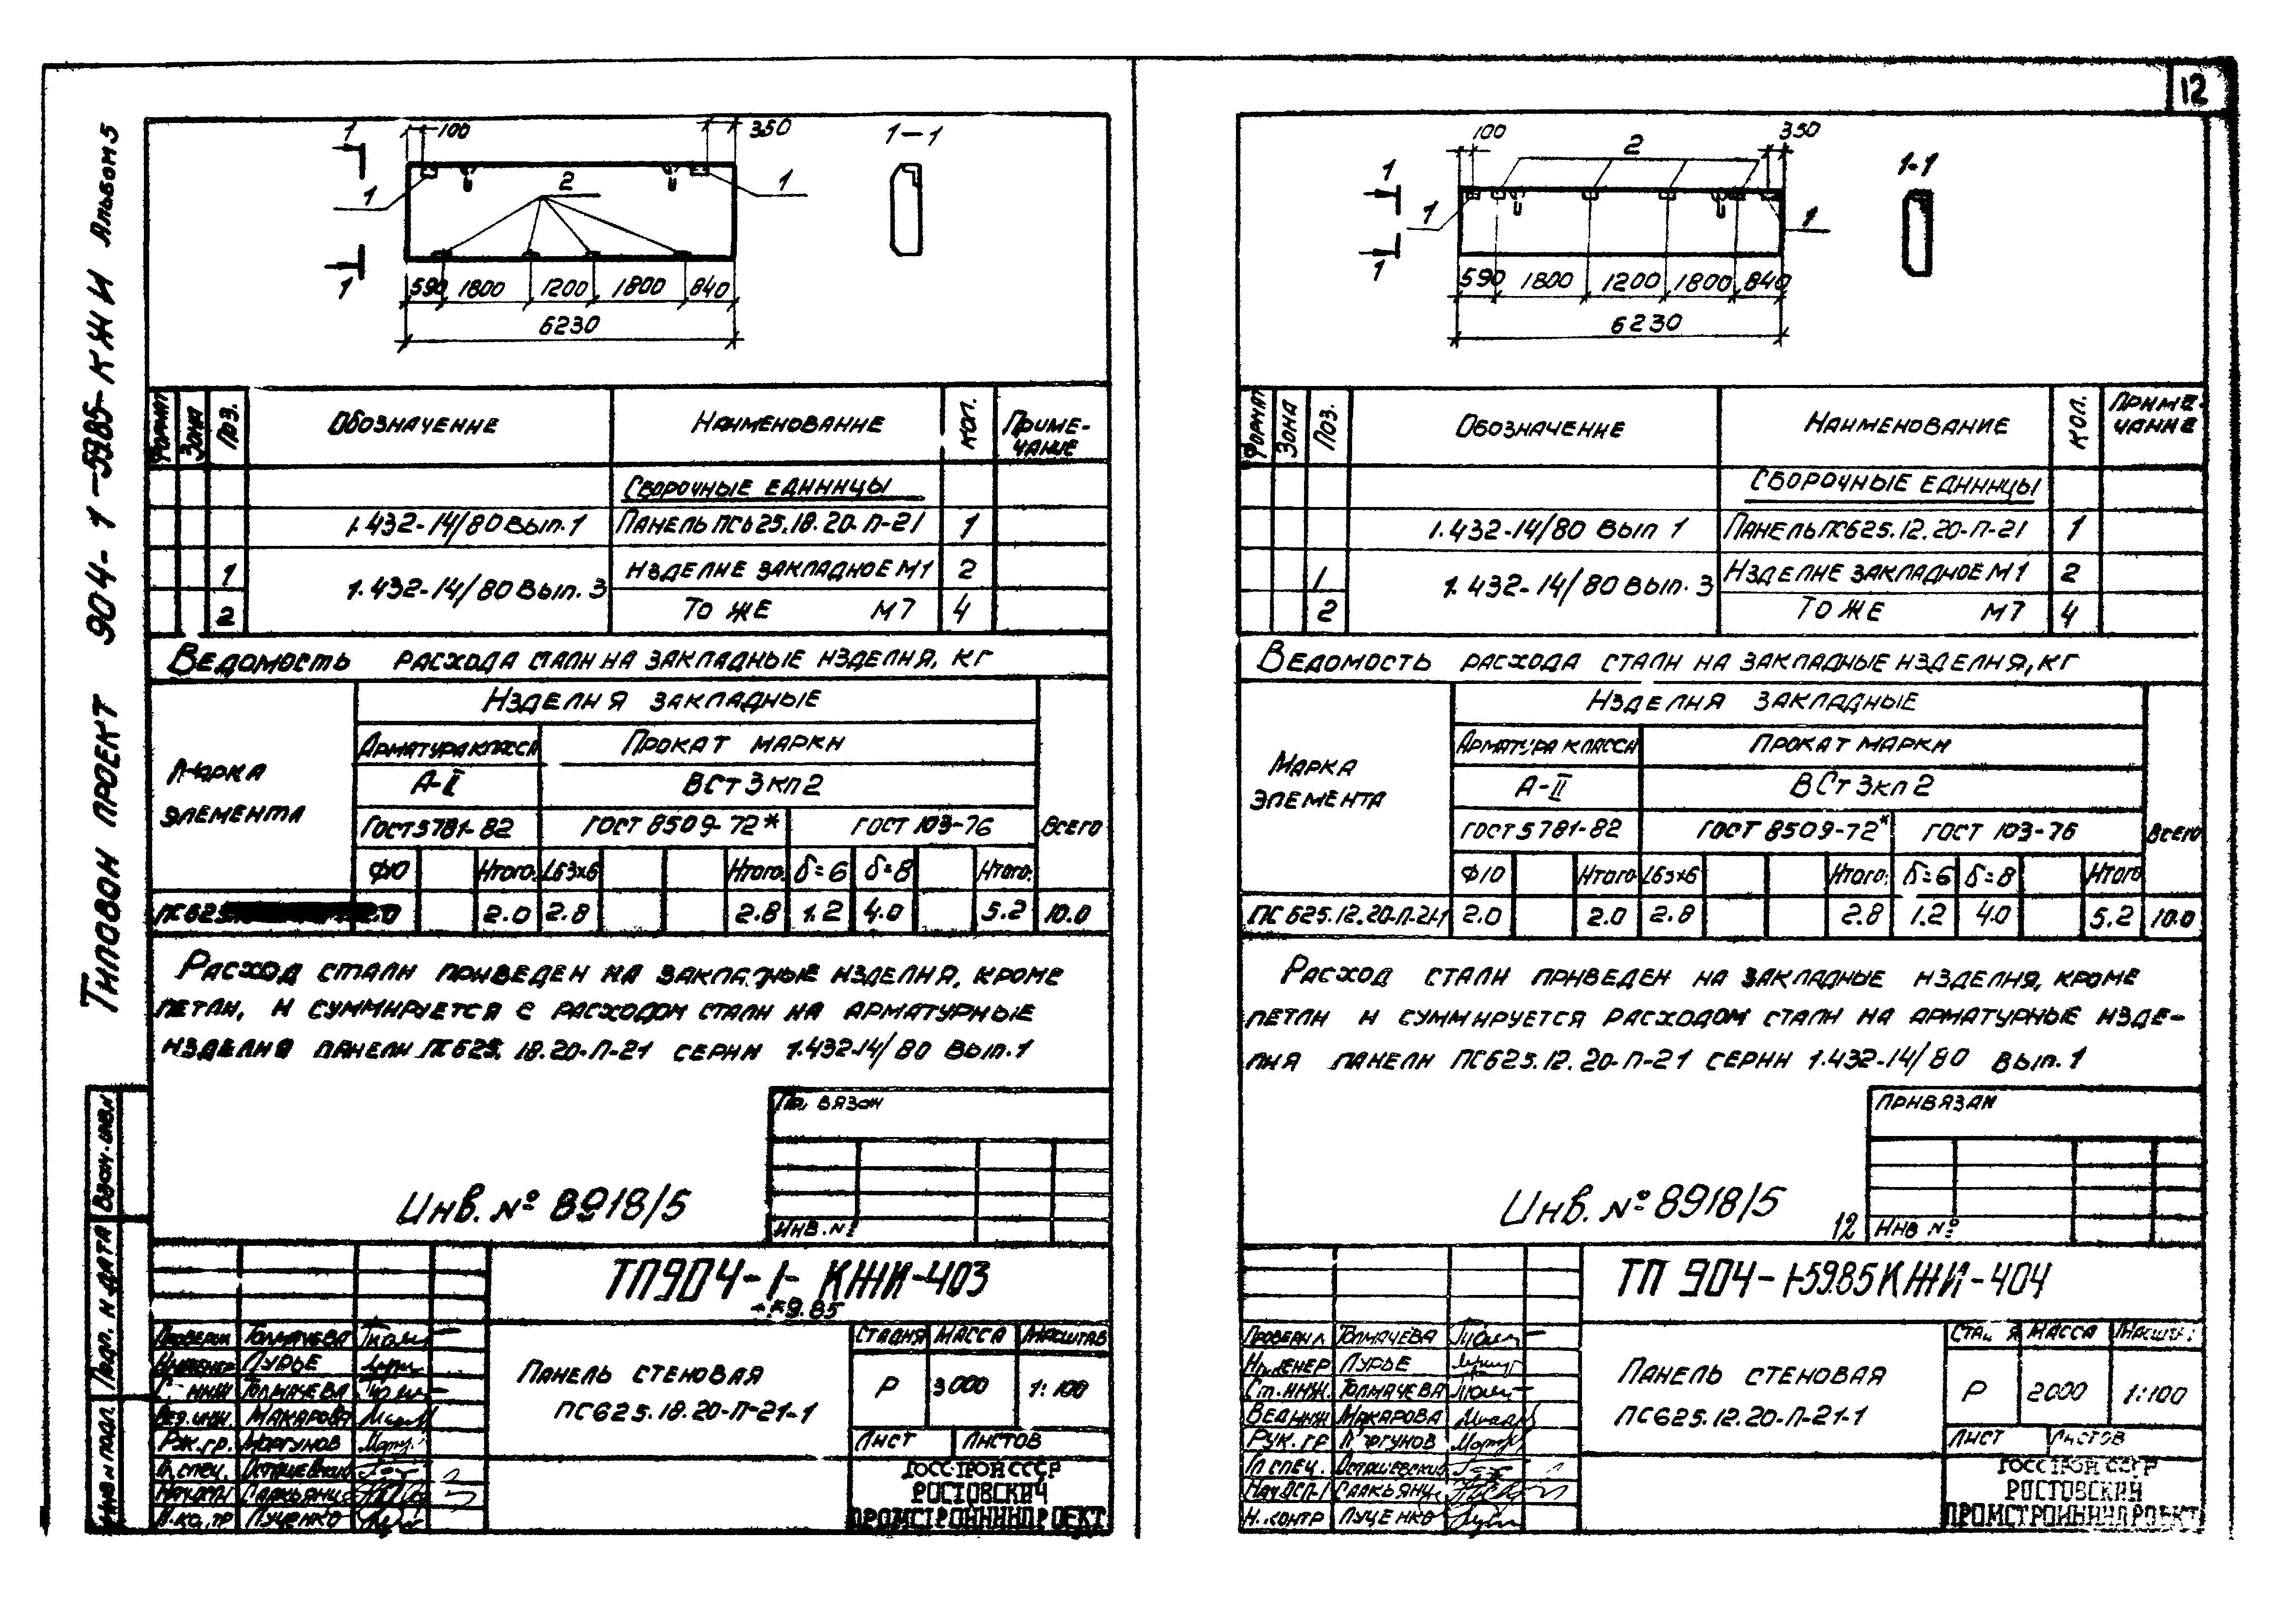 12
Типовой проект 904-1-59.85-КЖИ Альбом 5
Взам. инв. №
Подп. и дата
Инв № подл.
100
350
1-1
1
1
2
1
1
590 1800 1200 1800 840
6230
Формат Зона Поз. Обозначение Наименование Кол. Приме-
чание
Сборочные единицы
1.432-14/80 Вып. 1 Панель ПС625.18.20-П-21 1
1 1.432-14/80 Вып. 3 Изделие закладное М1 2
2 То же М7 4
Ведомость расхода стали на закладные изделия, кг
Марка
элемента
Изделия закладные
Арматура класса Прокат марки
А-II ВСт3кп2
ГОСТ 5781-82 ГОСТ 8509-72* ГОСТ 103-76 Всего
Ф10 Итого L63х6 Итого δ=6 δ=8 Итого
ПС625 2.0 2.0 2.8 2.8 1.2 4.0 5.2 10.0
Расход стали приведен на закладные изделия, кроме
петли, и суммируется с расходом стали на арматурные
изделия панели ПС625.18.20-П-21 серии 1.432-14/80 Вып.1
Привязан
Инв. №
Инв. № 8918/5
ТП904-1- КЖИ-403
59.85
Проверил Толмачева
Инженер Лурье
Ст. инж Толмачева
Вед.инж. Макарова
Рук.гр. Моргунов
Гл.спец. Осташевский
Нач.отд Саакьянц
Н.контр Луценко
Панель стеновая
ПС625.18.20-П-21-1
Стадия Масса Масштаб
Р 3000 1:100
Лист Листов
Госстрой СССР
Ростовский
Промстройниипроект
100
350
2
1-1
1
1
1
1
590 1800 1200 1800 840
6230
Формат Зона Поз. Обозначение Наименование Кол. Приме-
чание
Сборочные единицы
1.432-14/80 Вып 1 Панель ПС625.12.20-П-21 1
1 1.432-14/80 Вып. 3 Изделие закладное М1 2
2 То же М7 4
Ведомость расхода стали на закладные изделия, кг
Марка
элемента
Изделия закладные
Арматура класса Прокат марки
А-II ВСт3кп2
ГОСТ 5781-82 ГОСТ 8509-72* ГОСТ 103-76 Всего
Ф10 Итого L63х6 Итого δ=6 δ=8 Итого
ПС625.12.20-П-21-1 2.0 2.0 2.8 2.8 1.2 4.0 5.2 10.0
Расход стали приведен на закладные изделия, кроме
петли и суммируется расходом стали на арматурные изде-
лия панели ПС625.12.20-П-21 серии 1.432-14/80 Вып.1
Привязан
Инв №
Инв. № 8918/5
12
ТП 904-1-59.85 КЖИ-404
Проверил Толмачева
Инженер Лурье
Ст.инж. Толмачева
Вед инж Макарова
Рук.гр Моргунов
Гл спец. Осташевский
Нач.ОСП-1 Саакьянц
Н.контр Луценко
Панель стеновая
ПС625.12.20-П-21-1
Стадия Масса Масштаб
Р 2000 1:100
Лист Листов
Госстрой СССР
Ростовский
Промстройниипроект